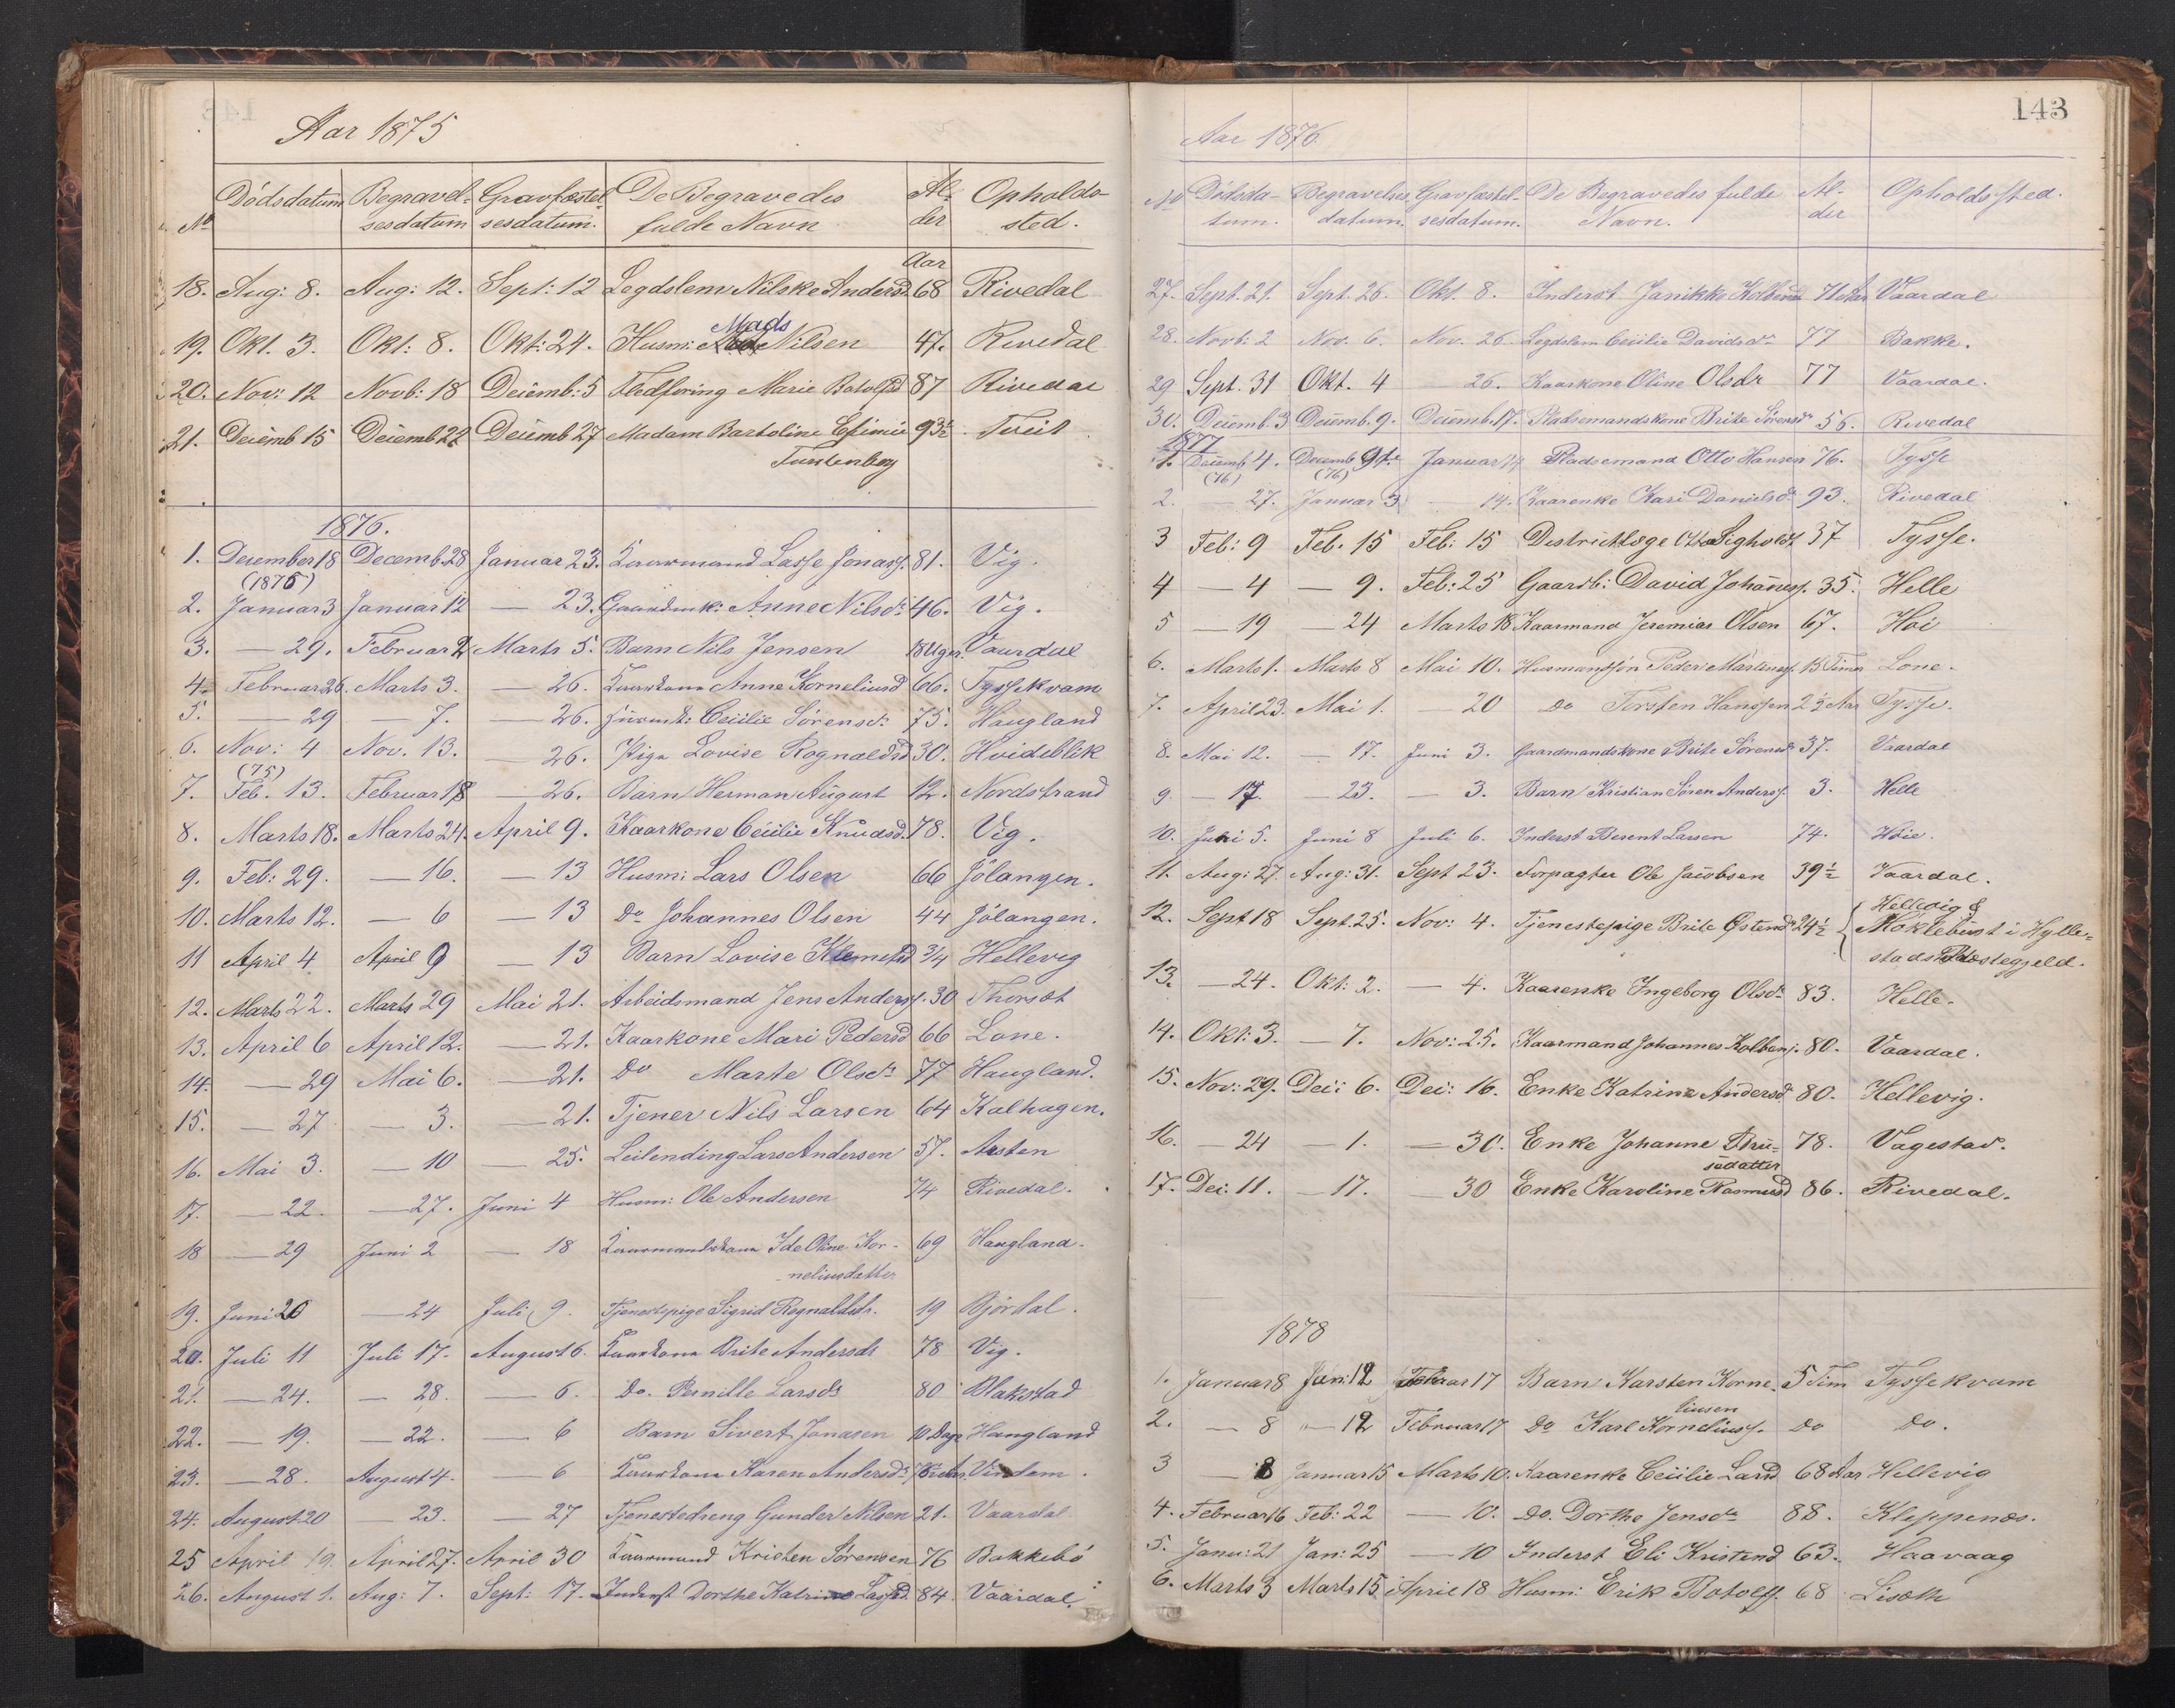 Aar 1875
No Dödsdatum Begravelsesdatum Gravfæstelsesdatum. De Begravedes fulde Navn Alder Opholdssted.
Aar
18. Aug: 8. Aug: 12. Sept: 12 Legdslem Nilske Andersd. 68 Rivedal
19. Okt. 3. Okt: 8. Okt: 24. Husm: Mads Nilsen 47. Rivedal
20. Nov: 12 Novb: 18 Decemb: 5 Fledföring Marie Botolfsd 87 Rivedal
21. Decemb 15 Decemb 22 Decemb 27 Madam Bartoline 93½ Tveit
1876.
1. December 18 Decemb. 28 Januar 23. Kaarmand Lasse Jonass. 81. Vig.
(1875)
2. Januar 3 Januar 12 — 23. Anne Nilsdr 46. Vig.
3. — 29. Februar 2 Marts 5. Barn Nils Jensen 18 Uger. Vaardal
4. Februar 26. Marts 3. — 26. Kaarkone Anne Korneliusd 66. Tyssekvam
5. — 29 — 7. — 26. Cecilie Sörensdr 75. Haugland
6. Nov: 4 Nov. 13. — 26. Pige Lovise Rognaldsd 30. Hvideblik
(75)
7. Feb. 13. Februar 18 — 26. Barn Herman August 12. Nordstrand
8. Marts 18. Marts 24. April 9. Kaarkone Cecilie Knudsd. 78. Vig.
9. Feb: 29. — 16. — 13 Husm: Lars Olsen 66 Jölangen.
10. Marts 12. — 6 — 13 Do Johannes Olsen 44 Jölangen.
11 April 4 April 9 — 13 Barn Lovise Klemetsd 3/4 Hellevig
12. Marts 22. Marts 29 Mai 21. Arbeidsmand Jens Anderss. 30 Thorsæt
13. April 6 April 12. — 21. Kaarkone Mari Pedersd 66 Lone.
14. — 29 Mai 6. — 21. Do Marte Olsdr 77 Haugland.
15. — 27 — 3. — 21. Tjener Nils Larsen 64 Kalhagen.
16. Mai 3. — 10 — 25. Leilending Lars Andersen 57. Aasten
17. — 22. — 27. Juni 4 Husm: Ole Andersen 74 Rivedal.
18 — 29 Juni 2 — 18 Kaarmandskone Ide Oline Kor- 69 Haugland.
neliusdatter
19. Juni 20 — 24 Juli 9. Tjenestepige Sigrid Rognaldsdr. 19 Björdal.
20. Juli 11 Juli 17. August 6. Kaarkone Brite Andersdr 78 Vig.
21. — 24. — 28. — 6. Do. Pernille Larsdr 80 Blakstad
22. — 19. — 22. — 6 Barn Sivert Jonasen 10 Dage Haugland
23. — 28. August 4. — 6 Kaarkone Karen Andersdr
24. August 20 — 23. — 27 Tjenestedreng Gunder Nilsen 21. Vaardal
25 April 19. April 27. April 30 Kaarmand Kristen Sörensen 76 Bakkebö
26. August 1. Aug: 7. Sept: 17. Inderst Dorthe Katrine Lassed. 84. Vaardal.
143
Aar 1876.
No Dödsdatum. Begravelsesdatum. Gravfæstelsesdatum. De Begravedes fulde Navn. Alder Opholdssted.
27. Sept. 21. Sept. 26. Okt. 8. Inderst Janikke Kolbensd 71 Aar Vaardal
28. Novb: 2 Nov. 6. Nov. 26 Legdslem Cecilie Davidsdr 77 Bakke.
29 Sept. 31 Okt. 4 — 26. Kaarkone Oline Olsdr 77 Vaardal.
30. Decemb. 3 Decemb. 9. Decemb. 17. Pladsemandskone Brite Sörensdr 56. Rivedal
1877
1. Decemb. 4. Decemb 9de Januar 14 Pladsemand Otto Hansen 76. Tysse
(76) (76)
2. — 27. Januar 3 — 14. Kaarenke Kari Danielsdr 93. Rivedal
3 Feb: 9 Feb. 15 Feb: 15 Destriktlæge Otto Sigholdt 37 Tysse.
4 — 4 — 9. Feb: 25 Gaardb: David Johaness. 35. Helle
5 — 19 — 24 Marts 18 Kaarmand Jeremias Olsen 67. Hoi
6. Marts 1. Marts 8 Mai 10. Husmanssön Peder Martinuss. 13 Timer Lone.
7. April 23. Mai 1. — 20 Do Torsten Hanssen 2½ Aar Tysse.
8. Mai 12. — 17. Juni 3. Gaardmandskone Brite Sörensdr 37. Vaardal
9. — 17. — 23. — 3. Barn Kristian Sören Anderss. 3. Helle
10. Juni 5. Juni 8 Juli 6. Inderst Berent Larsen 74. Höie.
11. Aug: 27. Aug: 31. Sept 23. Forpagter Ole Jacobsen 39½ Vaardal.
12. Sept 18 Sept. 25. Nov: 4. Tjenestepige Brite Östensdr 24½ { Hellevig &
Möklebust i Hylle-
stads Præstegjeld.
13. — 24. Okt: 2. — 4. Kaarenke Ingeborg Olsdr 83. Helle.
14. Okt: 3. — 7. Nov: 25. Kaarmand Johannes Kolbens. 80. Vaardal.
15. Nov: 29. Dec: 6. Dec: 16. Enke Katrine Andersd. 80. Hellevig.
16. — 24 — 1. — 30. Enke Johanne Bru- 78. Vagestad.
sedatter
17. Dec: 11. — 17. 30 Enke Karoline Rasmusd 86. Rivedal.
1878
1. Januar 8 Jan: 12 Februar 17 Barn Karsten Korne- 5 Tim Tyssekvam
liusen
2. — 8 — 12 Februar 17 Do Karl Korneliuss. Do Do.
3 — 8 Januar 15 Marts 10. Kaarenke Cecilie Larsd 68 Aar Hellevig
4. Februar 16 Feb: 22 — 10. Do. Dorthe Jensdr 88. Kleppenæs.
5. Janu: 21 Jan: 25 — 10 Inderst Eli Kristensd 63. Haavaag
6. Marts 3 Marts 15 April 18 Husm: Erik Botolfs. 68 Lisæth